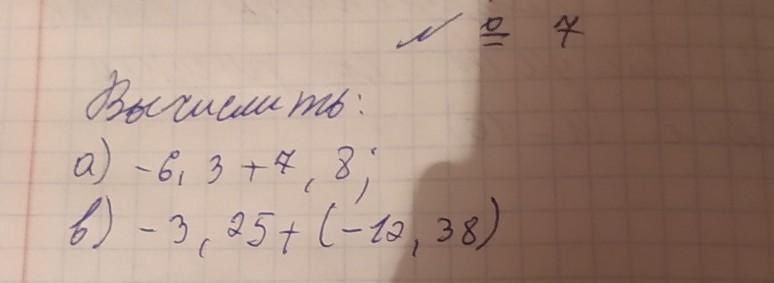 № 7
Вычислить:
а) -6,3+7,8;
в) -3,25+(-12,38)